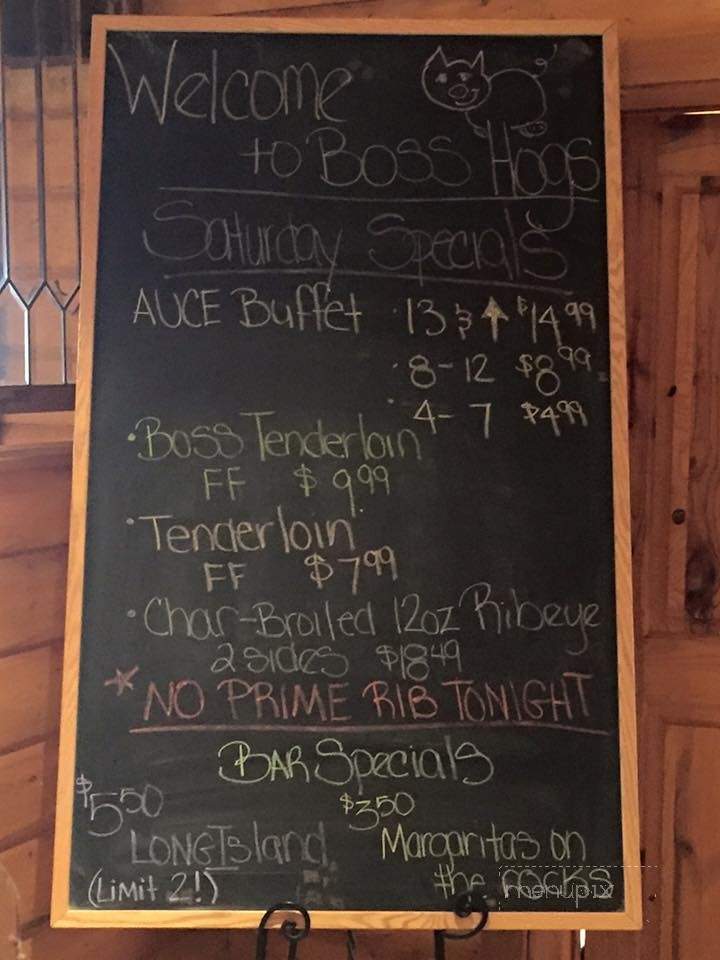 Welcome
to Boss Hogs
Saturday Specials
AUCE Buffet · 13 & ↑ $14.99
· 8-12 $8.99
· 4-7 $4.99
· Boss Tenderloin
FF $9.99
· Tenderloin
FF $7.99
· Char-Broiled 12oz Ribeye
2 sides $18.49
* NO PRIME RIB TONIGHT
BAR Specials
$5.50
$3.50
LONG Island
Margaritas on
(Limit 2!)
the rocks
menupix